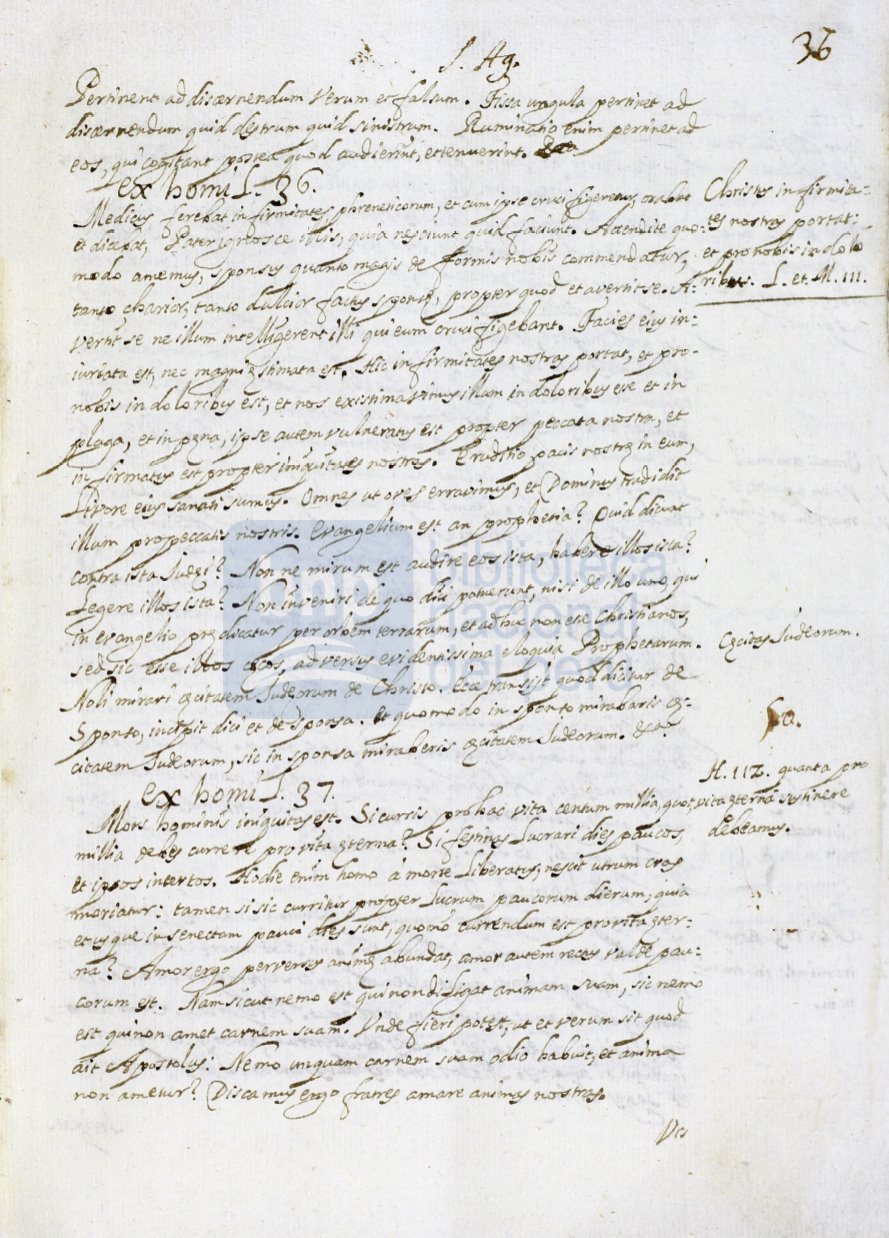 S. Ag.
36
Pertinent ad discernendum Verum et falsum. Fissa ungula pertinet ad
discernendum quid destrum quid sinistrum. Ruminatio enim pertinet ad
eos, qui cogitant postea quod audierint, et tenuerint.
ex homil. 36.
Medicus ferebat infirmitates phreneticorum, et cum ipse crucifigeretur, orabat
et dicebat, Pater ignosce illis, quia nesciunt quid faciunt. Attendite quo-
modo amemus, sponsus quanto magis deformis nobis commendatur,
tanto charior, tanto dulcior factus sponsus, propter quod et avertit se. A-
vertit se ne illum intelligerent illi qui eum crucifigebant. Facies eius in-
iuriata est, nec magni ęstimata est. Hic infirmitates nostras portat, et pro-
nobis in doloribus est, et nos existimavimus illum in doloribus esse et in
plaga, et in pęna, ipse autem vulneratus est propter peccata nostra, et
infirmatus est propter iniquitates nostras. Eruditio pacis nostrę in eum,
Livore eius sanati sumus. Omnes ut oves erravimus, et Dominus tradidit
illum pro peccatis nostris. Evangelium est an prophetia? Quid dicunt
contra ista Judęi? Non ne mirum est audire eos ista, habere illos ista?
Legere illos ista? Non inveniri de quo dici potuerunt, nisi de illo uno, qui
in evangelio prędicatur per orbem terrarum, et adhuc non esse Christianos,
sed sic esse istos cęcos, adversus evidentissima eloquia Prophetarum.
Noli mirari cęcitatem Judeorum de Christo. Ecce transijt quod dicitur de
Sponso, incipit dici et de sponsa. Et quomodo in sponso mirabaris cę-
citatem Judeorum, sic in sponsa miraberis cęcitatem Judeorum. &c.
ex homil. 37.
Mors hominis iniquitas est. Si curris pro hac vita centum millia, quot
millia debes currere pro vita ęterna? Si festinas lucrari dies paucos,
et ipsos intertos. Hodie enim homo á morte liberatus, nescit utrum cras
moriatur: tamen si sic curritur propter lucrum paucorum dierum, quia
et usque in senectam pauci dies sunt, quomo currendum est pro vita ęter-
na? Amor ergo perversus animę abundat, amor autem rectus valde pau-
corum est. Nam sicut nemo est qui non diligat animam suam, sic nemo
est qui non amet carnem suam. Unde fieri potest, ut et verum sit quod
ait Apostolus: Nemo unquam carnem suam odio habuit, et anima
non ametur? Discamus ergo fratres amare animas nostras.
Christus infirmita-
tes nostras portat:
et pro nobis in dolo
ribus. L. et. M. III.
Cęcitas Judeorum.
H. 112. quanta pro
vita ęterna sustinere
debeamus.
biblioteca
nacional
del perú